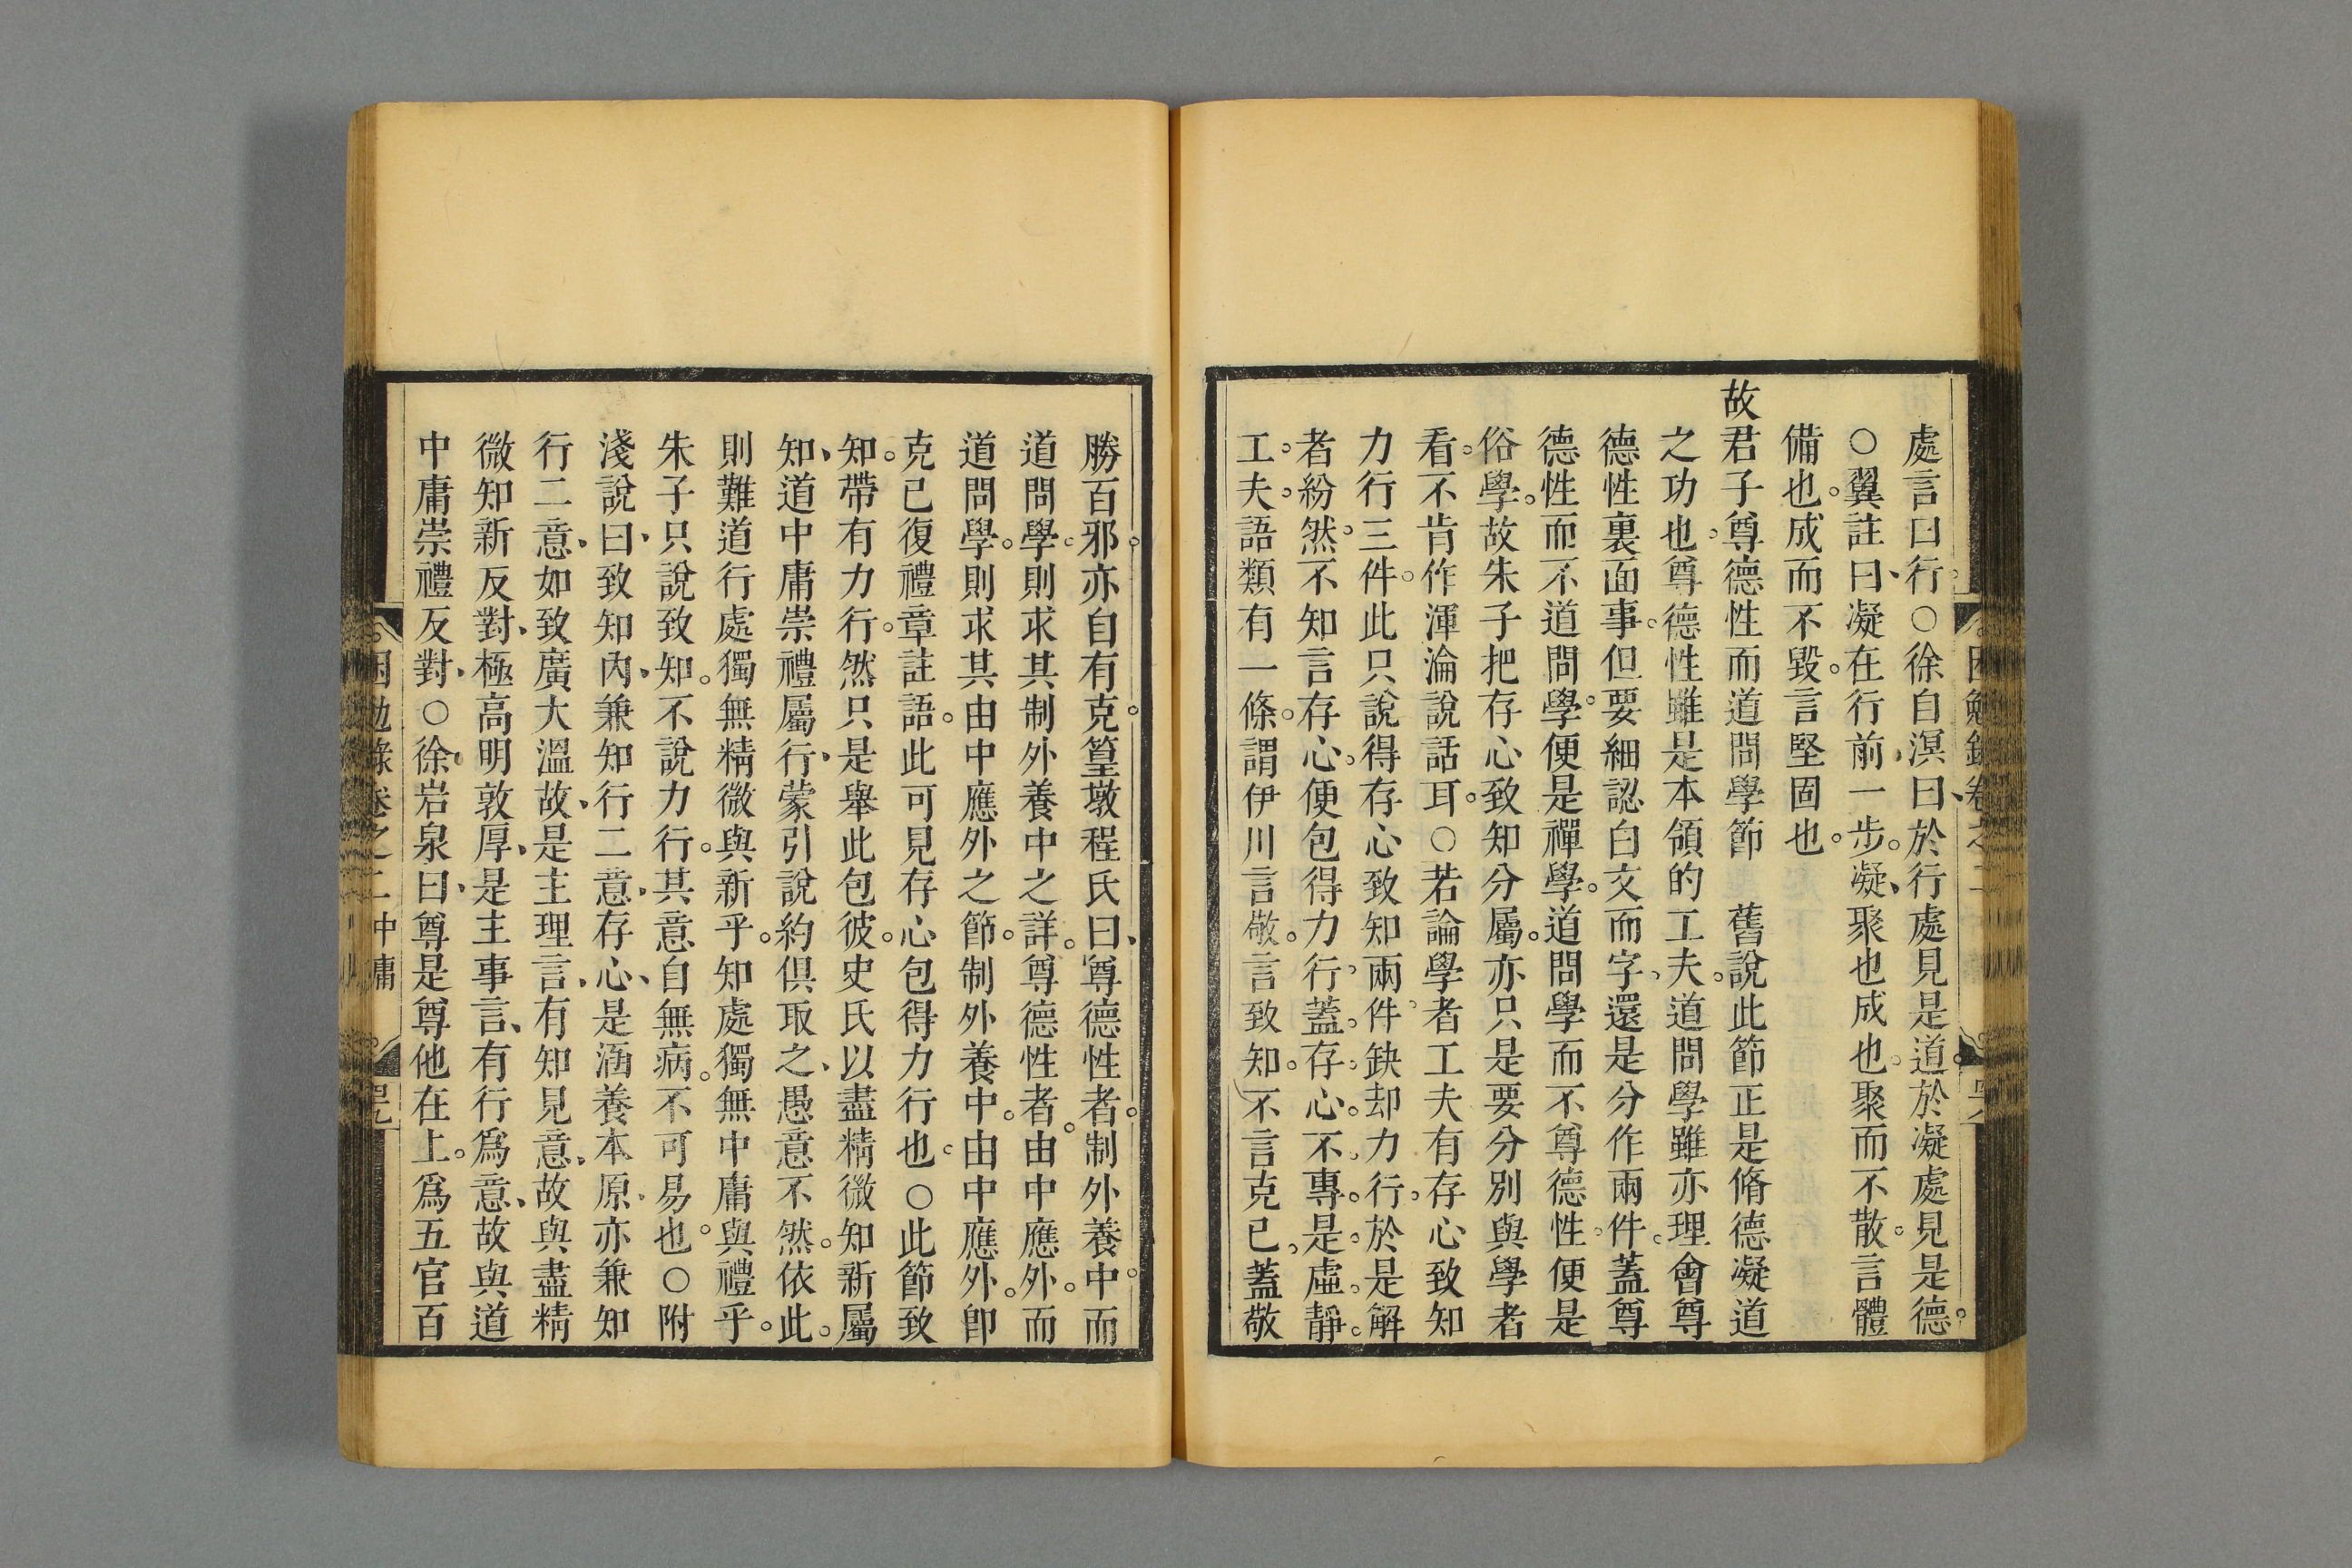 處言曰行○徐自溟曰於行處見是道於凝處見是德
○翼註曰凝在行前一步凝聚也成也聚而不散言體
備也成而不毀言堅固也
故君子尊德性而道問學節　舊說此節正是脩德凝道
之功也尊德性雖是本領的工夫道問學雖亦理會尊
德性裏面事但要細認白文而字還是分作兩件蓋尊
德性而不道問學便是禪學道問學而不尊德性便是
俗學故朱子把存心致知分屬亦只是要分別與學者
看不肯作渾淪說話耳○若論學者工夫有存心致知
力行三件此只說得存心致知兩件缺却力行於是解
者紛然不知言存心便包得力行蓋存心不專是虛靜
工夫語類有一條謂伊川言敬言致知不言克己蓋敬
勝百邪亦自有克篁墩程氏曰尊德性者制外養中而
道問學則求其制外養中之詳尊德性者由中應外而
道問學則求其由中應外之節制外養中由中應外卽
克己復禮章註語此可見存心包得力行也○此節致
知帶有力行然只是舉此包彼史氏以盡精微知新屬
知道中庸崇禮屬行蒙引說約俱取之愚意不然依此
則難道行處獨無精微與新乎知處獨無中庸與禮乎
朱子只說致知不說力行其意自無病不可易也○附
淺說曰致知內兼知行二意存心是涵養本原亦兼知
行二意如致廣大溫故是主理言有知見意故與盡精
微知新反對極高明敦厚是主事言有行爲意故與道
中庸崇禮反對○徐岩泉曰尊是尊他在上爲五官百
困勉錄卷之二中庸